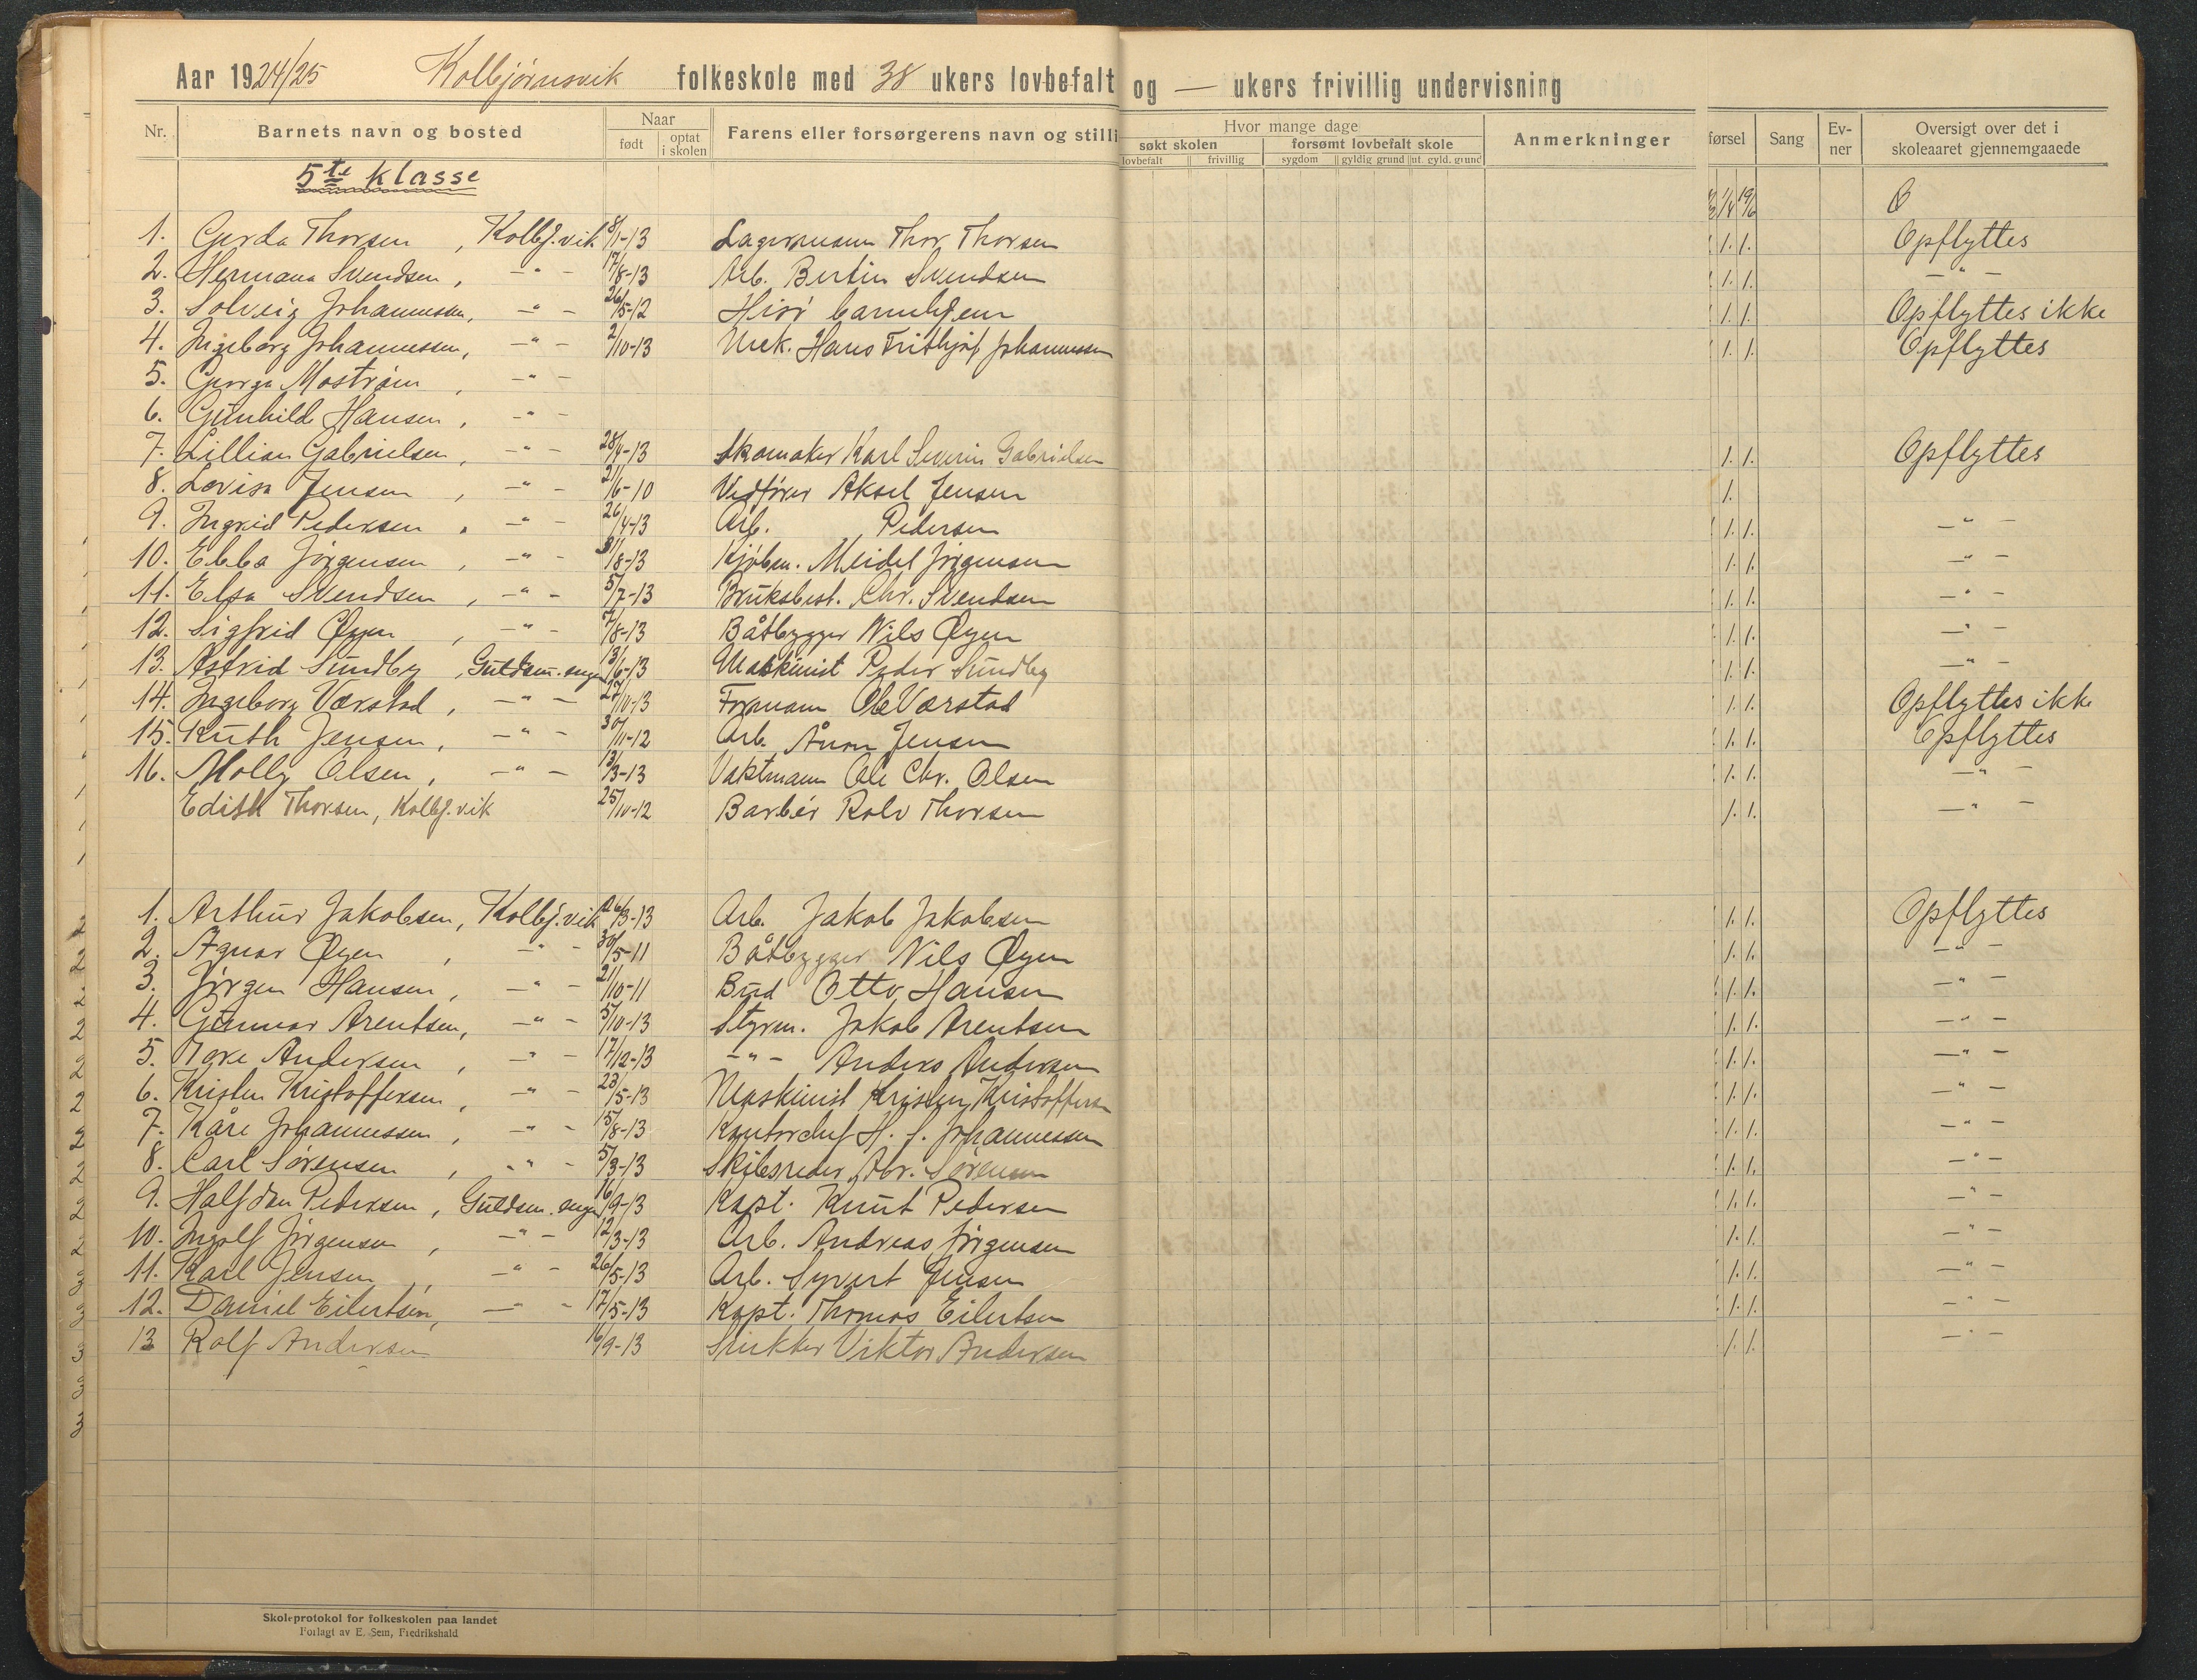 Aar 1924/25 Kolbjørnsvik folkeskole med 38 ukers lovbefalt og — ukers frivillig undervisning
Nr. Barnets navn og bosted Naar født optat i skolen Farens eller forsørgerens navn og stilli Hvor mange dage søkt skolen lovbefalt frivillig forsømt lovbefalt skole sygdom gyldig grund ut. gyld. grund Anmerkninger førsel Sang Ev-ner Oversigt over det i skoleaaret gjennemgaaede
5te klasse
1. Gerda Thorsen, Kolbj.vik 8/1-13 Lagermann Thor Thorsen 1. 1. Opflyttes
2. Hermana Svendsen, —"— 17/8-13 Arb. Bertin Svendsen 1. 1. —"—
3. Solveig Johannessen, —"— 26/5-12 Hisø barnehjem 1. 1. Opflyttes ikke
4. Ingeborg Johannessen, —"— 2/10-13 Mek. Hans Frithjof Johannessen 1. 1. Opflyttes
5. Georga Mostrøm, —"—
6. Gunhild Hansen, —"—
7. Lillian Gabrielsen, —"— 28/4-13 Skomaker Karl Severin Gabrielsen 1. 1. Opflyttes
8. Lovisa Jensen, —"— 21/6-10 Vedfører Aksel Jensen 1.
9. Ingrid Pedersen, —"— 26/4-13 Arb. Pedersen 1. 1. —"—
10. Ebba Jørgensen, —"— 31/8-13 Kjøbm. Meidel Jørgensen 1. 1. —"—
11. Elsa Svendsen, —"— 5/7-13 Bruksbest. Chr. Svendsen 1. 1. —"—
12. Sigfrid Øyen, —"— 7/8-13 Båtbygger Nils Øyen 1. 1. —"—
13. Astrid Sundby, Guldsm.engen 13/6-13 Maskinist Peder Sundby 1. 1. —"—
14. Ingeborg Værstad, —"— 27/10-13 Formann Ole Værstad 1. 1. Opflyttes ikke
15. Ruth Jensen, —"— 30/11-12 Arb. Ånon Jensen 1. 1. Opflyttes
16. Molly Olsen, —"— 13/3-13 Vaktmann Ole Chr. Olsen 1. 1. —"—
Edith Thorsen, Kolbj.vik 25/10-12 Barbér Rolv Thorsen 1. 1. —"—
1. Arthur Jakobsen, Kolbj.vik 26/3-13 Arb. Jakob Jakobsen 1. 1. Opflyttes
2. Agnar Øyen, —"— 30/5-11 Båtbygger Nils Øyen 1. 1. —"—
3. Jørgen Hansen, —"— 21/10-11 Bud Otto Hansen 1. 1. —"—
4. Gunnar Arentsen, —"— 5/10-13 Styrm. Jakob Arentsen 1. 1. —"—
5. Tore Andersen, —"— 17/12-13 —"— Anders Andersen 1. 1. —"—
6. Kristen Kristoffersen, —"— 23/5-13 Maskinist Kristen Kristoffersen 1. 1. —"—
7. Kåre Johannessen, —"— 15/8-13 Kontorchef H. J. Johannessen 1. 1. —"—
8. Carl Sørensen, —"— 5/3-13 Skibsreder Abr. Sørensen 1. 1. —"—
9. Halfdan Pedersen, Guldsm.engen 16/9-13 Kapt. Knut Pedersen 1. 1. —"—
10. Ingolf Jørgensen, —"— 12/3-13 Arb. Andreas Jørgensen 1. 1. —"—
11. Karl Jensen, —"— 26/5-13 Arb. Syvert Jensen 1. 1. —"—
12. Daniel Eilertsen, —"— 17/5-13 Kapt. Thomas Eilertsen 1. 1. —"—
13 Rolf Andersen 16/9-13 Viktor Andersen 1. 1. —"—
Skoleprotokol for folkeskolen paa landet
Forlagt av E. Sem, Fredrikshald